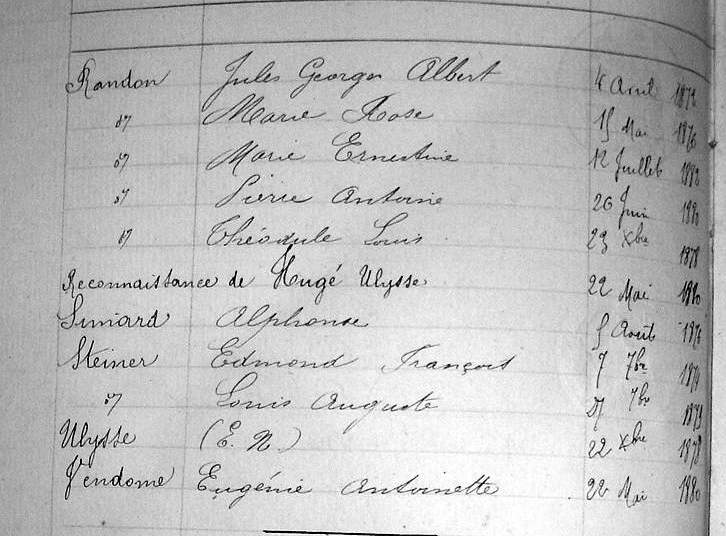 Randon Jules Georges Albert 4 Avril 1872
d° Marie Rose 15 Mai 1876
d° Marie Ernestine 12 Juillet 1880
d° Pierre Antoine 26 Juin 1880
d° Théodule Louis 23 Xbre 1878
Reconnaissance de Hugé Ulysse 22 Mai 1880
Simiard Alphonse 5 Août
Steiner Edmond François 7 7bre
d° Louis Auguste 7bre 1873
Ulysse (E. N.) 22 Xbre 1878
Vendome Eugénie Antoinette 22 Mai 1880